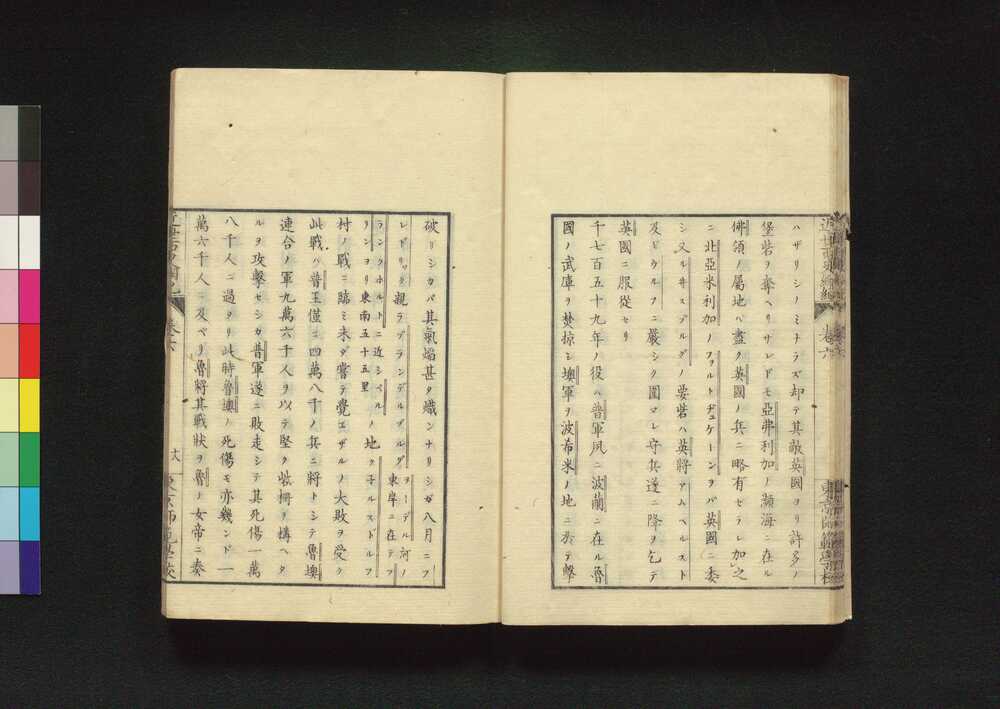 ハザリシノミナラズ却テ其敵英國ヨリ許多ノ
堡砦ヲ奪ヘリサレドモ亞弗利加ノ瀕海ニ在ル
佛領ノ屬地ハ盡ク英國ノ兵ニ略有セラレ加之
ニ北亞米利加ノフォルトヂュケーンヲバ英國ニ委
シ又ルヰスブルグノ要砦ハ英將アムヘルスト
及ビウルフニ嚴シク圍マレ守兵遂ニ降ヲ乞テ
英國ニ服從セリ
千七百五十九年ノ役ハ普軍夙ニ波蘭ニ在ル魯
國ノ武庫ヲ焚掠シ墺軍ヲ波希米ノ地ニ於テ擊
卷六
破リシカバ其氣焔甚タ熾ンナリシガ八月ニフ
レドリッキ親ラブランデルブルグヲーデル河ノ東岸ニ在テフ
ランクホルトニ近シベルリンヨリ東南五十五里ノ地クネルスドルフ
村ノ戰ニ臨ミ未ダ嘗テ覺エザルノ大敗ヲ受ク
此戰ハ普王僅ニ四萬八千ノ兵ニ將トシテ魯墺
連合ノ軍九萬六千人ヲ以テ堅タ柵ヲ構ヘタ
ルヲ攻擊セシカ普軍遂ニ敗走シテ其死傷一萬
八千人ニ過タリ此時魯墺ノ死傷モ亦幾ンド一
萬六千人ニ及ベリ魯將其戰狀ヲ魯ノ女帝ニ奏
卷六
東京師範學校